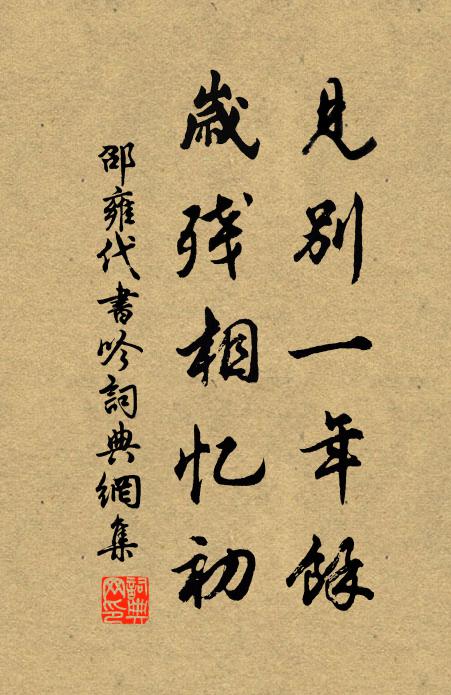 見別一年餘
歲残相忆初
邵雍代書吟詞典網集
詞典
网印